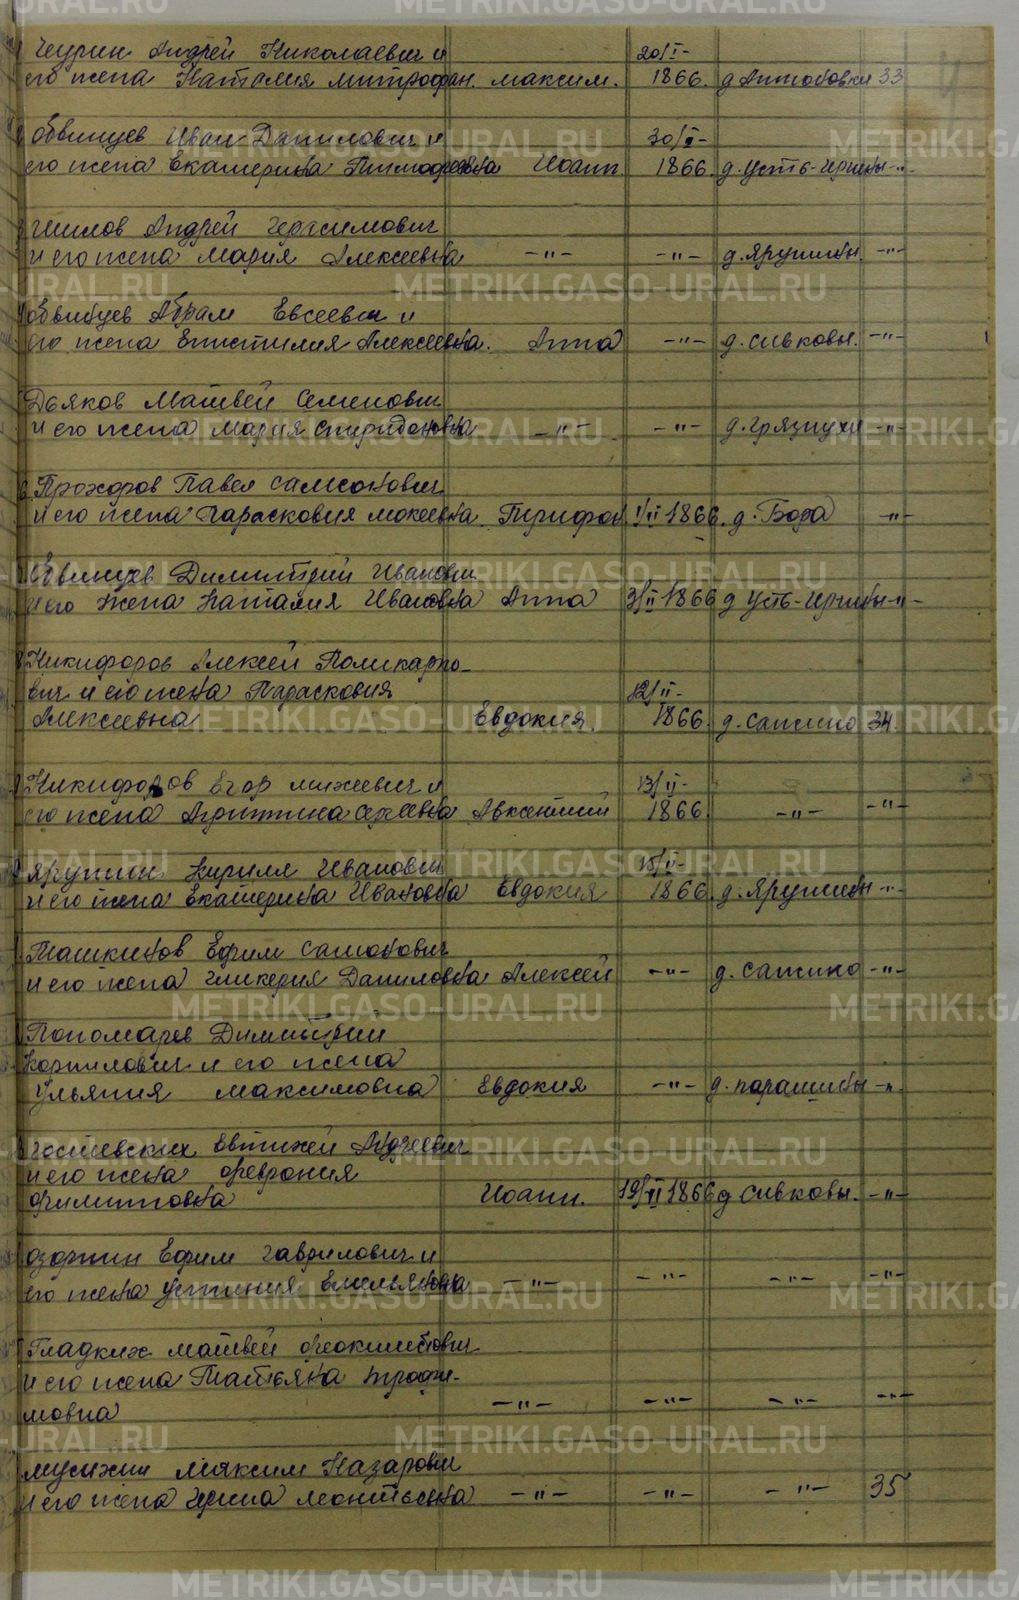 Чеурин Андрей Николаевич и 20/I-
его жена Наталия Митрофан. Максим. 1866. д. Антоновки 33
Обвинцев Иван Данилович и 30/I-
его жена Екатерина Тимофеевна Иоанн 1866. д. Усть-Иргины -"-
Шилов Андрей Герасимович
и его жена Мария Алексеевна -"- -"- д. Ярушины. -"-
Обвинцев Абрам Евсеевич и
его жена Епистилия Алексеевна. Анна -"- д. Сивковы. -"-
Дьяков Матвей Семенович
и его жена Мария Спиридоновна -"- -"- д. Грязнухи -"-
Прохоров Павел Самсонович
и его жена Парасковия Мокеевна. Трифон 1/II 1866. д. Бора -"-
Обвинцев Димитрий Иванович
и его жена Наталия Ивановна Анна 3/II 1866 д Усть-Иргины -"-
Никифоров Алексей Поликарпо-
вич и его жена Парасковия 12/II-
Алексеевна Евдокия. 1866. д. Сажино 34.
Никифоров Егор Михеевич и 13/II-
его жена Агриппина Сергеевна Авксентий 1866. -"- -"-
Ярушин Кирилл Иванович 15/II-
и его жена Екатерина Ивановна Евдокия 1866. д. Ярушины -"-
Ташкинов Ефим Самонович
и его жена Гликерия Даниловна Алексей -"- д. Сажино -"-
Пономарев Димитрий
Корнилович и его жена
Ульяния Максимовна Евдокия -"- д. Парашины -"-
Гостевских Евтихей Андреевич
и его жена Феврония
Филипповна Иоанн. 19/II 1866 д Сивковы. -"-
Озорнин Ефим Гаврилович и
его жена Устиния Емельяновна -"- -"- -"- -"-
Гладких Матвей Феоктистович
и его жена Татьяна Трофи-
мовна -"- -"- -"- -"-
Мусихин Максим Назарович
и его жена Ирина Леонтьевна -"- -"- -"- 35